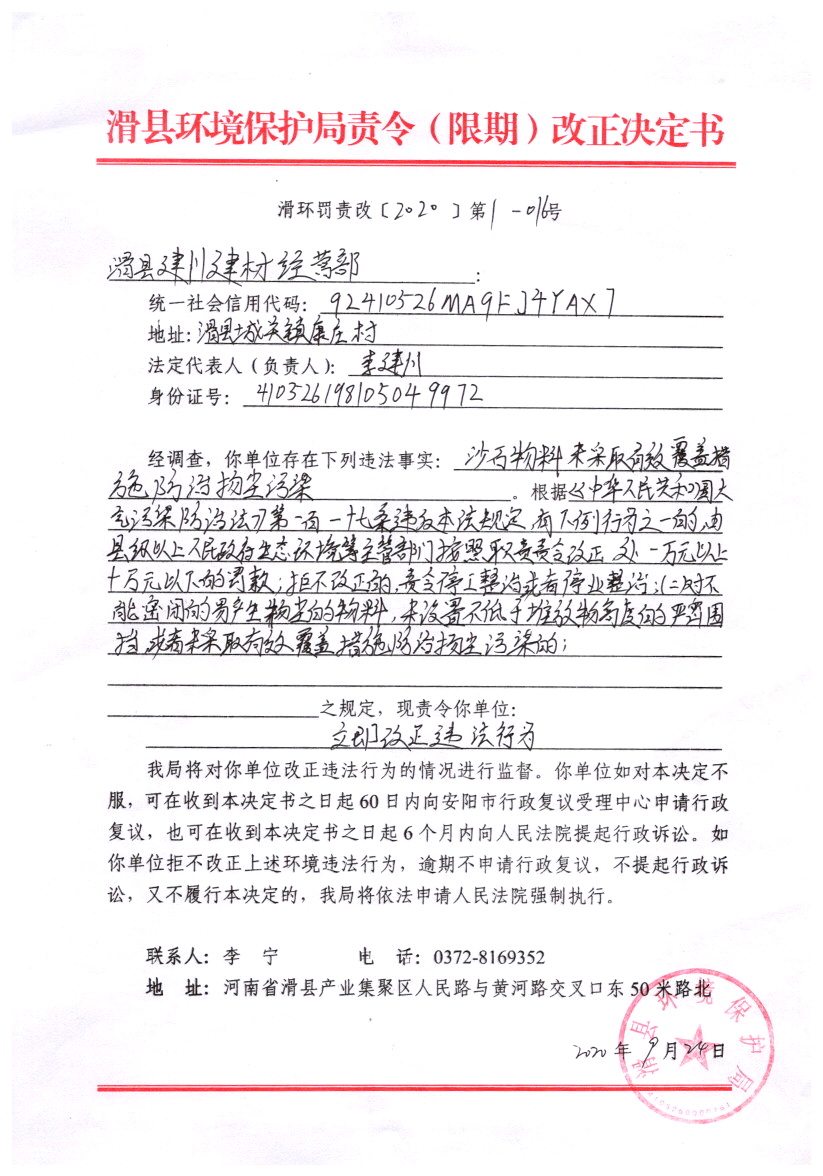 滑县环境保护局责令（限期）改正决定书
滑环罚责改〔2020〕第1-016号
滑县建川建材经营部：
统一社会信用代码：92410526MA9FJ4YAX7
地址：滑县城关镇康庄村
法定代表人（负责人）：李建川
身份证号：410526198105049972
经调查，你单位存在下列违法事实：沙石物料未采取有效覆盖措
施防治扬尘污染。根据《中华人民共和国大
气污染防治法》第一百一十七条违反本法规定，有下列行为之一的，由
县级以上人民政府生态环境等主管部门按照职责责令改正，处一万元以上
十万元以下的罚款；拒不改正的，责令停工整治或者停业整治：（二）对不
能密闭的易产生扬尘的物料，未设置不低于堆放物高度的严密围
挡，或者未采取有效覆盖措施防治扬尘污染的；
之规定，现责令你单位：
立即改正违法行为
我局将对你单位改正违法行为的情况进行监督。你单位如对本决定不
服，可在收到本决定书之日起60日内向安阳市行政复议受理中心申请行政
复议，也可在收到本决定书之日起6个月内向人民法院提起行政诉讼。如
你单位拒不改正上述环境违法行为，逾期不申请行政复议，不提起行政诉
讼，又不履行本决定的，我局将依法申请人民法院强制执行。
联系人：李 宁 电 话：0372-8169352
地 址：河南省滑县产业集聚区人民路与黄河路交叉口东50米路北
滑县环境保护局
2020年9月24日